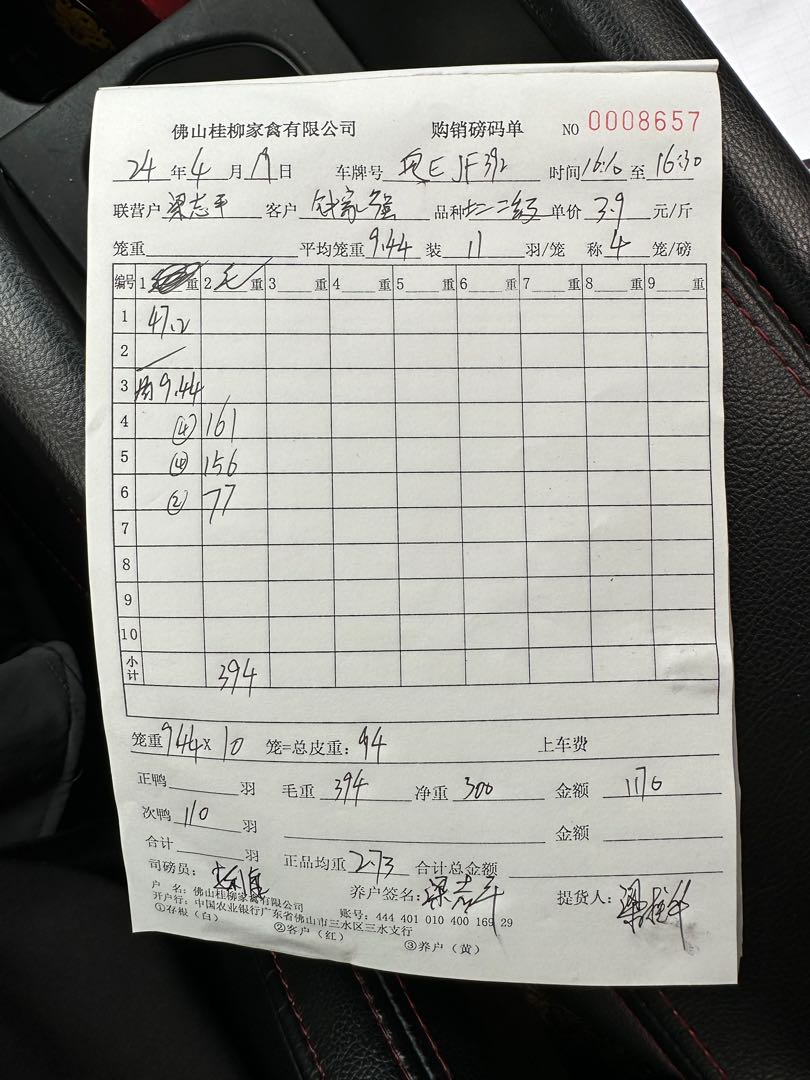 佛山桂柳家禽有限公司 购销磅码单 NO 0008657
24 年 4 月 日 车牌号 粤E JF392 时间16:10 至 16:30
联营户 梁志平 客户 钱家强 品种 二级 单价 3.9 元/斤
笼重 平均笼重 9.44 装 11 羽/笼 称 4 笼/磅
编号 1 重 2 毛 重 3 重 4 重 5 重 6 重 7 重 8 重 9 重
1 47.2
2
3 均9.44
4 ④ 161
5 ④ 156
6 ② 77
7
8
9
10
小计 394
笼重 944 × 10 笼=总皮重: 94 上车费
正鸭 羽 毛重 394 净重 300 金额 1170
次鸭 110 羽 金额
合计 羽 正品均重 2.73 合计总金额
司磅员: 养户签名: 梁志平 提货人:
户 名: 佛山桂柳家禽有限公司
开户行: 中国农业银行广东省佛山市三水区三水支行 账号: 444 401 010 400 169 29
①存根(白) ②客户(红) ③养户(黄)